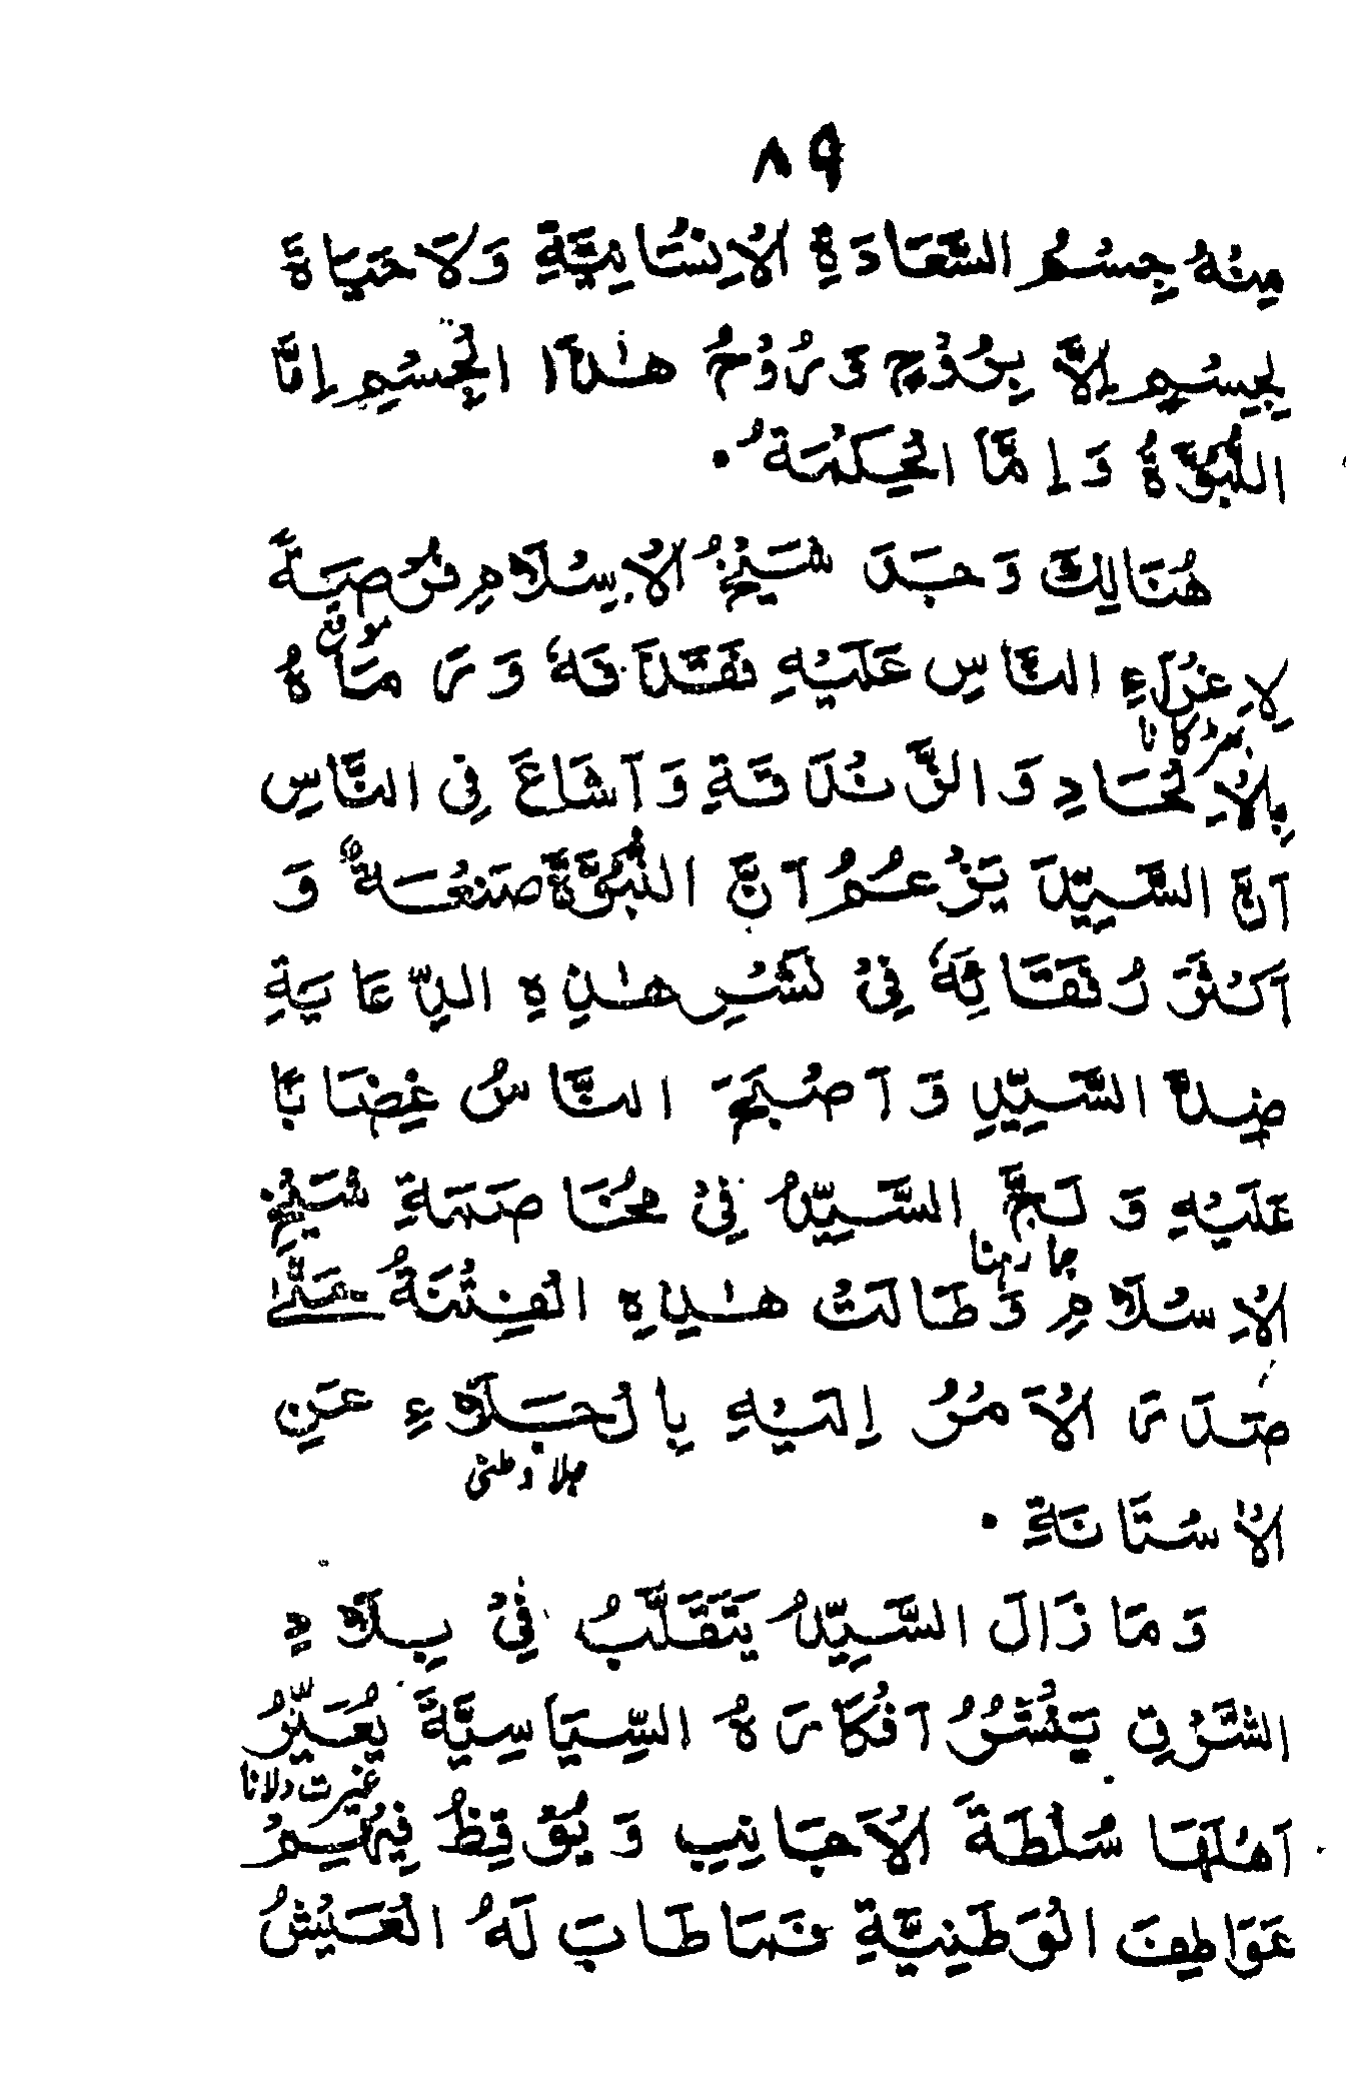 ۸۹
مِنْهُ جِسْمُ السَّعَادَةِ الْاِنْسَانِيَّةِ وَلَا حَيَاةَ
لِجِسْمٍ اِلَّا بِرُوْحٍ وَ رُوْحُ هٰذَا الْجِسْمِ اِمَّا
النُّبُوَّةُ وَ اِمَّا الْحِكْمَةُ ۰
هُنَالِكَ وَجَدَ شَيْخُ الْاِسْلَامِ فُرْصَةً
موقع
لِاِغْرَاءِ النَّاسِ عَلَيْهِ فَقَذَفَهٗ وَ رَمَاهُ
بھڑکانا
بِالْاِلْحَادِ وَ الزَّنْدَقَةِ وَ اَشَاعَ فِي النَّاسِ
اَنَّ السَّيِّدَ يَزْعُمُ اَنَّ النُّبُوَّةَ صَنْعَةٌ وَ
اَكْثَرَ رُفَقَائِهٗ فِيْ نَشْرِ هٰذِهِ الدِّعَايَةِ
ضِدَّ السَّيِّدِ وَ اَصْبَحَ النَّاسُ غِضَابًا
عَلَيْهِ وَ لَجَّ السَّيِّدُ فِيْ مُخَاصَمَةِ شَيْخِ
جما رہنا
الْاِسْلَامِ وَ طَالَتْ هٰذِهِ الْفِتْنَةُ حَتّٰى
صَدَرَ الْاَمْرُ اِلَيْهِ بِالْجَلَاءِ عَنِ
جلا وطنی
الْاَسْتَانَةِ ۰
وَ مَا زَالَ السَّيِّدُ يَتَقَلَّبُ فِيْ بِلَادِ
الشَّرْقِ يَنْشُرُ اَفْكَارَهُ السِّيَاسِيَّةَ يُعَيِّرُ
غیرت دلانا
اَهْلَهَا سُلْطَةَ الْاَجَانِبِ وَ يُوْقِظُ فِيْهِمْ
عَوَاطِفَ الْوَطَنِيَّةِ فَمَا طَابَ لَهُ الْعَيْشُ